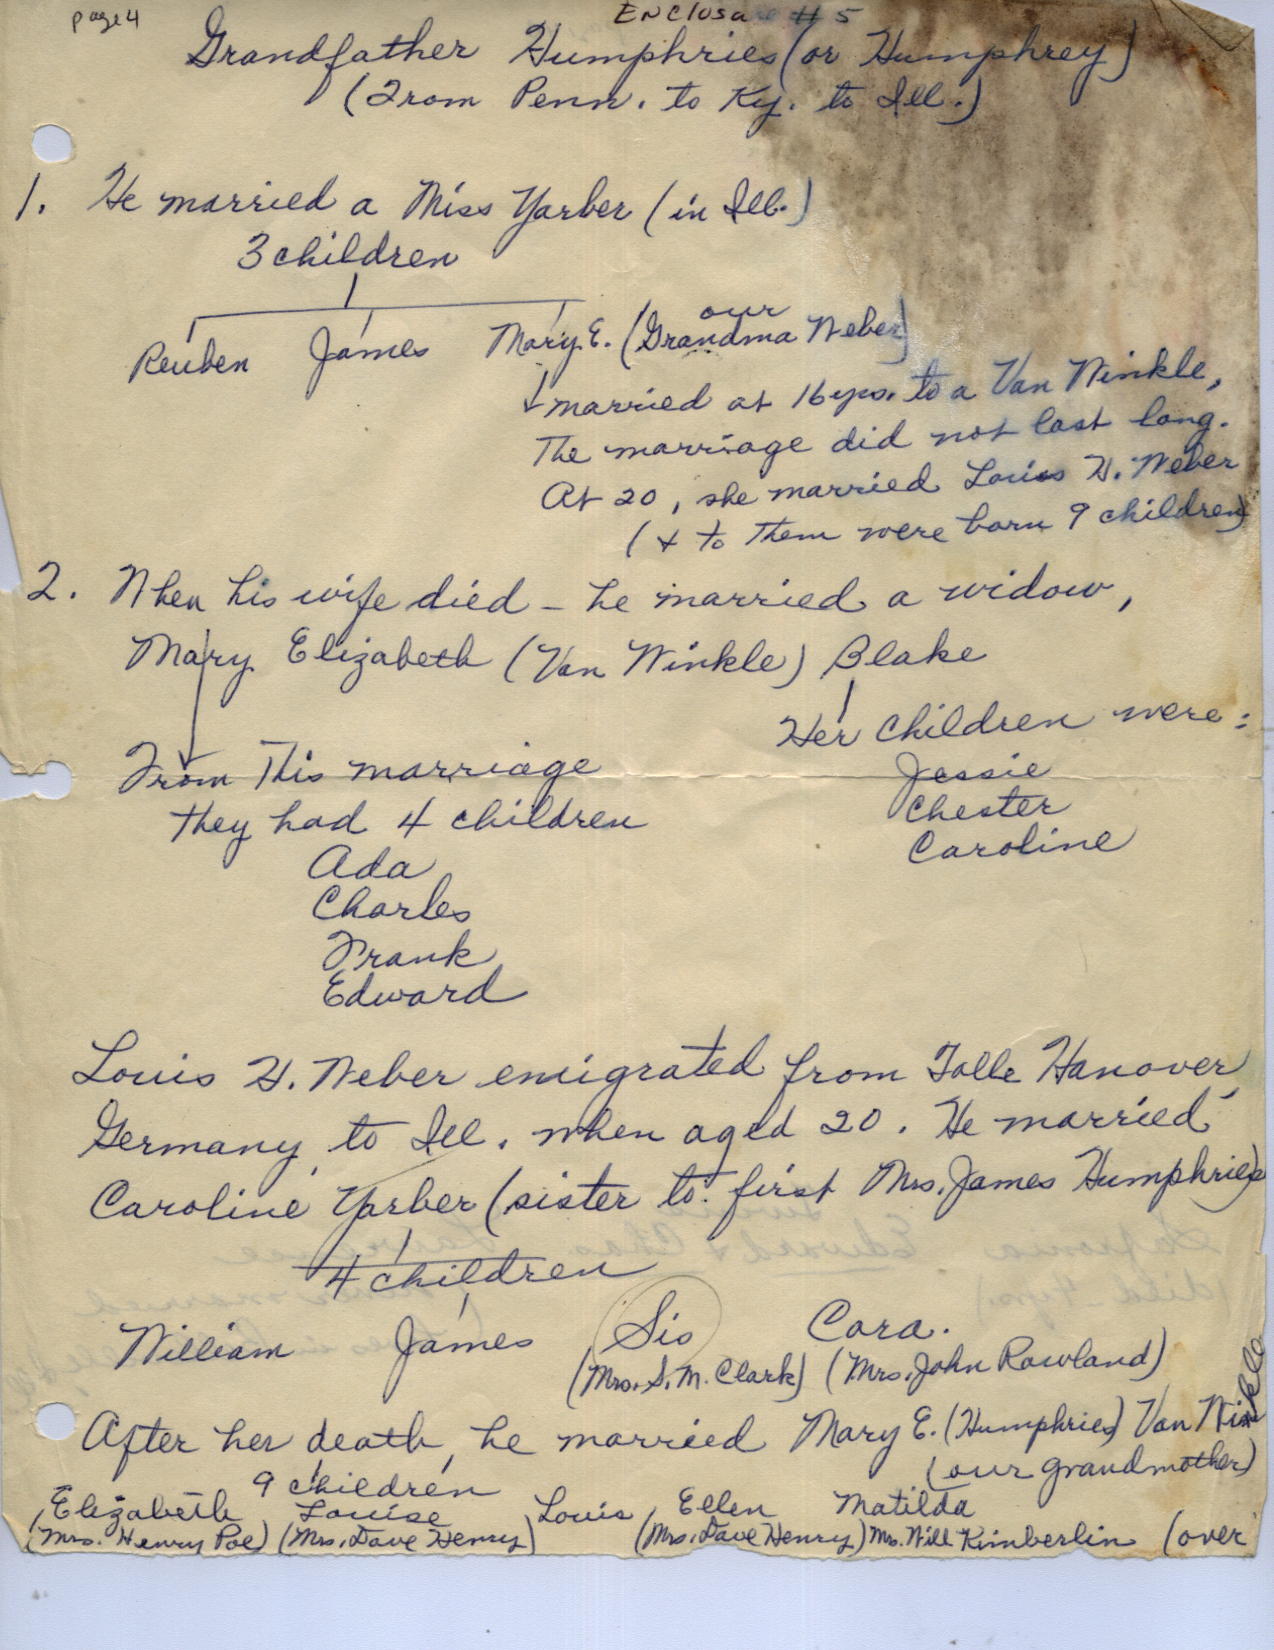 page 4
Enclosure #5
Grandfather Humphries (or Humphrey)
(From Penn. to Ky. to Ill.)
1. He married a Miss Yarber (in Ill.)
3 children
Reuben James Mary E. (our Grandma Weber)
married at 16 yrs. to a Van Winkle,
The marriage did not last long.
At 20, she married Louis H. Weber
(& to them were born 9 children)
2. When his wife died – he married a widow,
Mary Elizabeth (Van Winkle) Blake
Her children were:
Jessie
Chester
Caroline
From This marriage
they had 4 children
Ada
Charles
Frank
Edward
Louis H. Weber emigrated from Tolle Hanover,
Germany, to Ill. when aged 20. He married
Caroline Yarber (sister to first Mrs. James Humphries)
4 children
William James Sis Cora.
(Mrs. S. M. Clark) (Mrs. John Rowland)
After her death, he married Mary E. (Humphries) Van Winkle
(our grandmother)
9 children
Elizabeth Louise Louis Ellen Matilda
(Mrs. Henry Poe) (Mrs. Dave Henry) (Mrs. Dave Henry) Mrs. Will Kimberlin (over